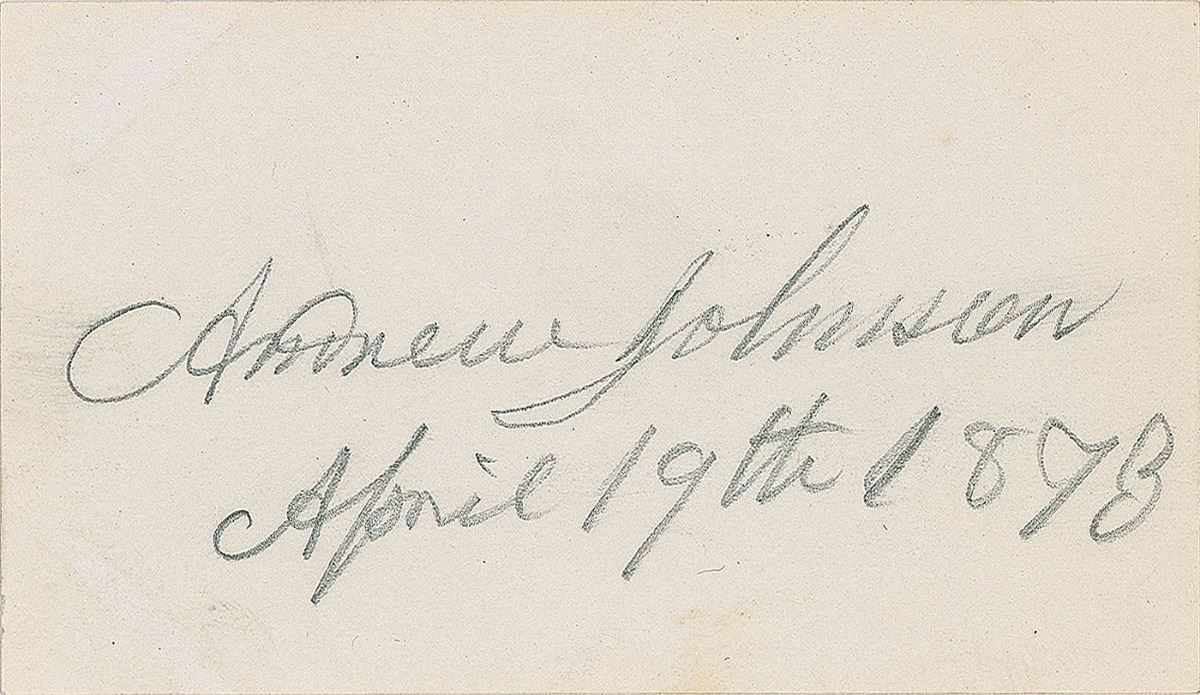 Andrew Johnson
April 19th 1873